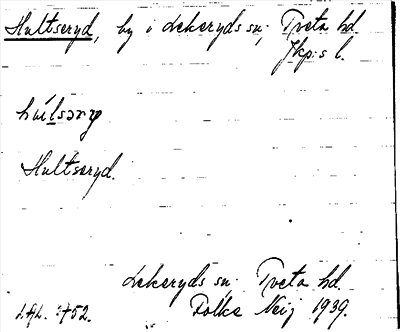 Hultseryd, by i Lekeryds sn; Tveta hd.
Jkp:s l.
Hultseryd.
Lekeryds sn; Tveta hd.
Folke Neij 1939.